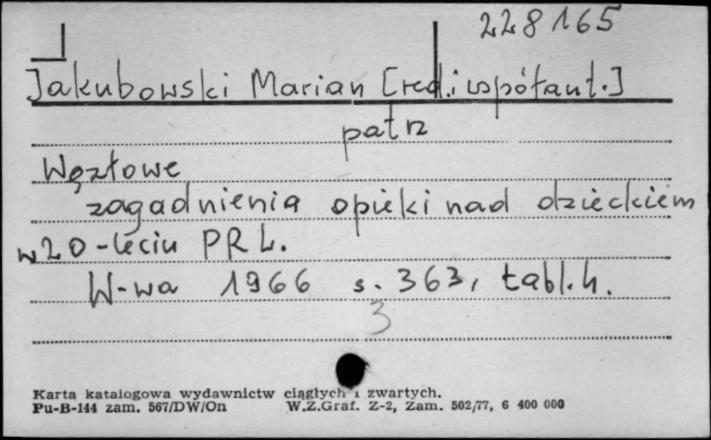 228165
Jakubowski Marian [red. i współaut.]
patrz
Węzłowe
zagadnienia opieki nad dzieckiem
w 20-leciu PRL.
W-wa 1966 s. 363, tabl. 4.
3
Karta katalogowa wydawnictw ciągłych i zwartych.
Pu-B-144 zam. 567/DW/On W.Z.Graf. Z-2, Zam. 502/77, 6 400 000